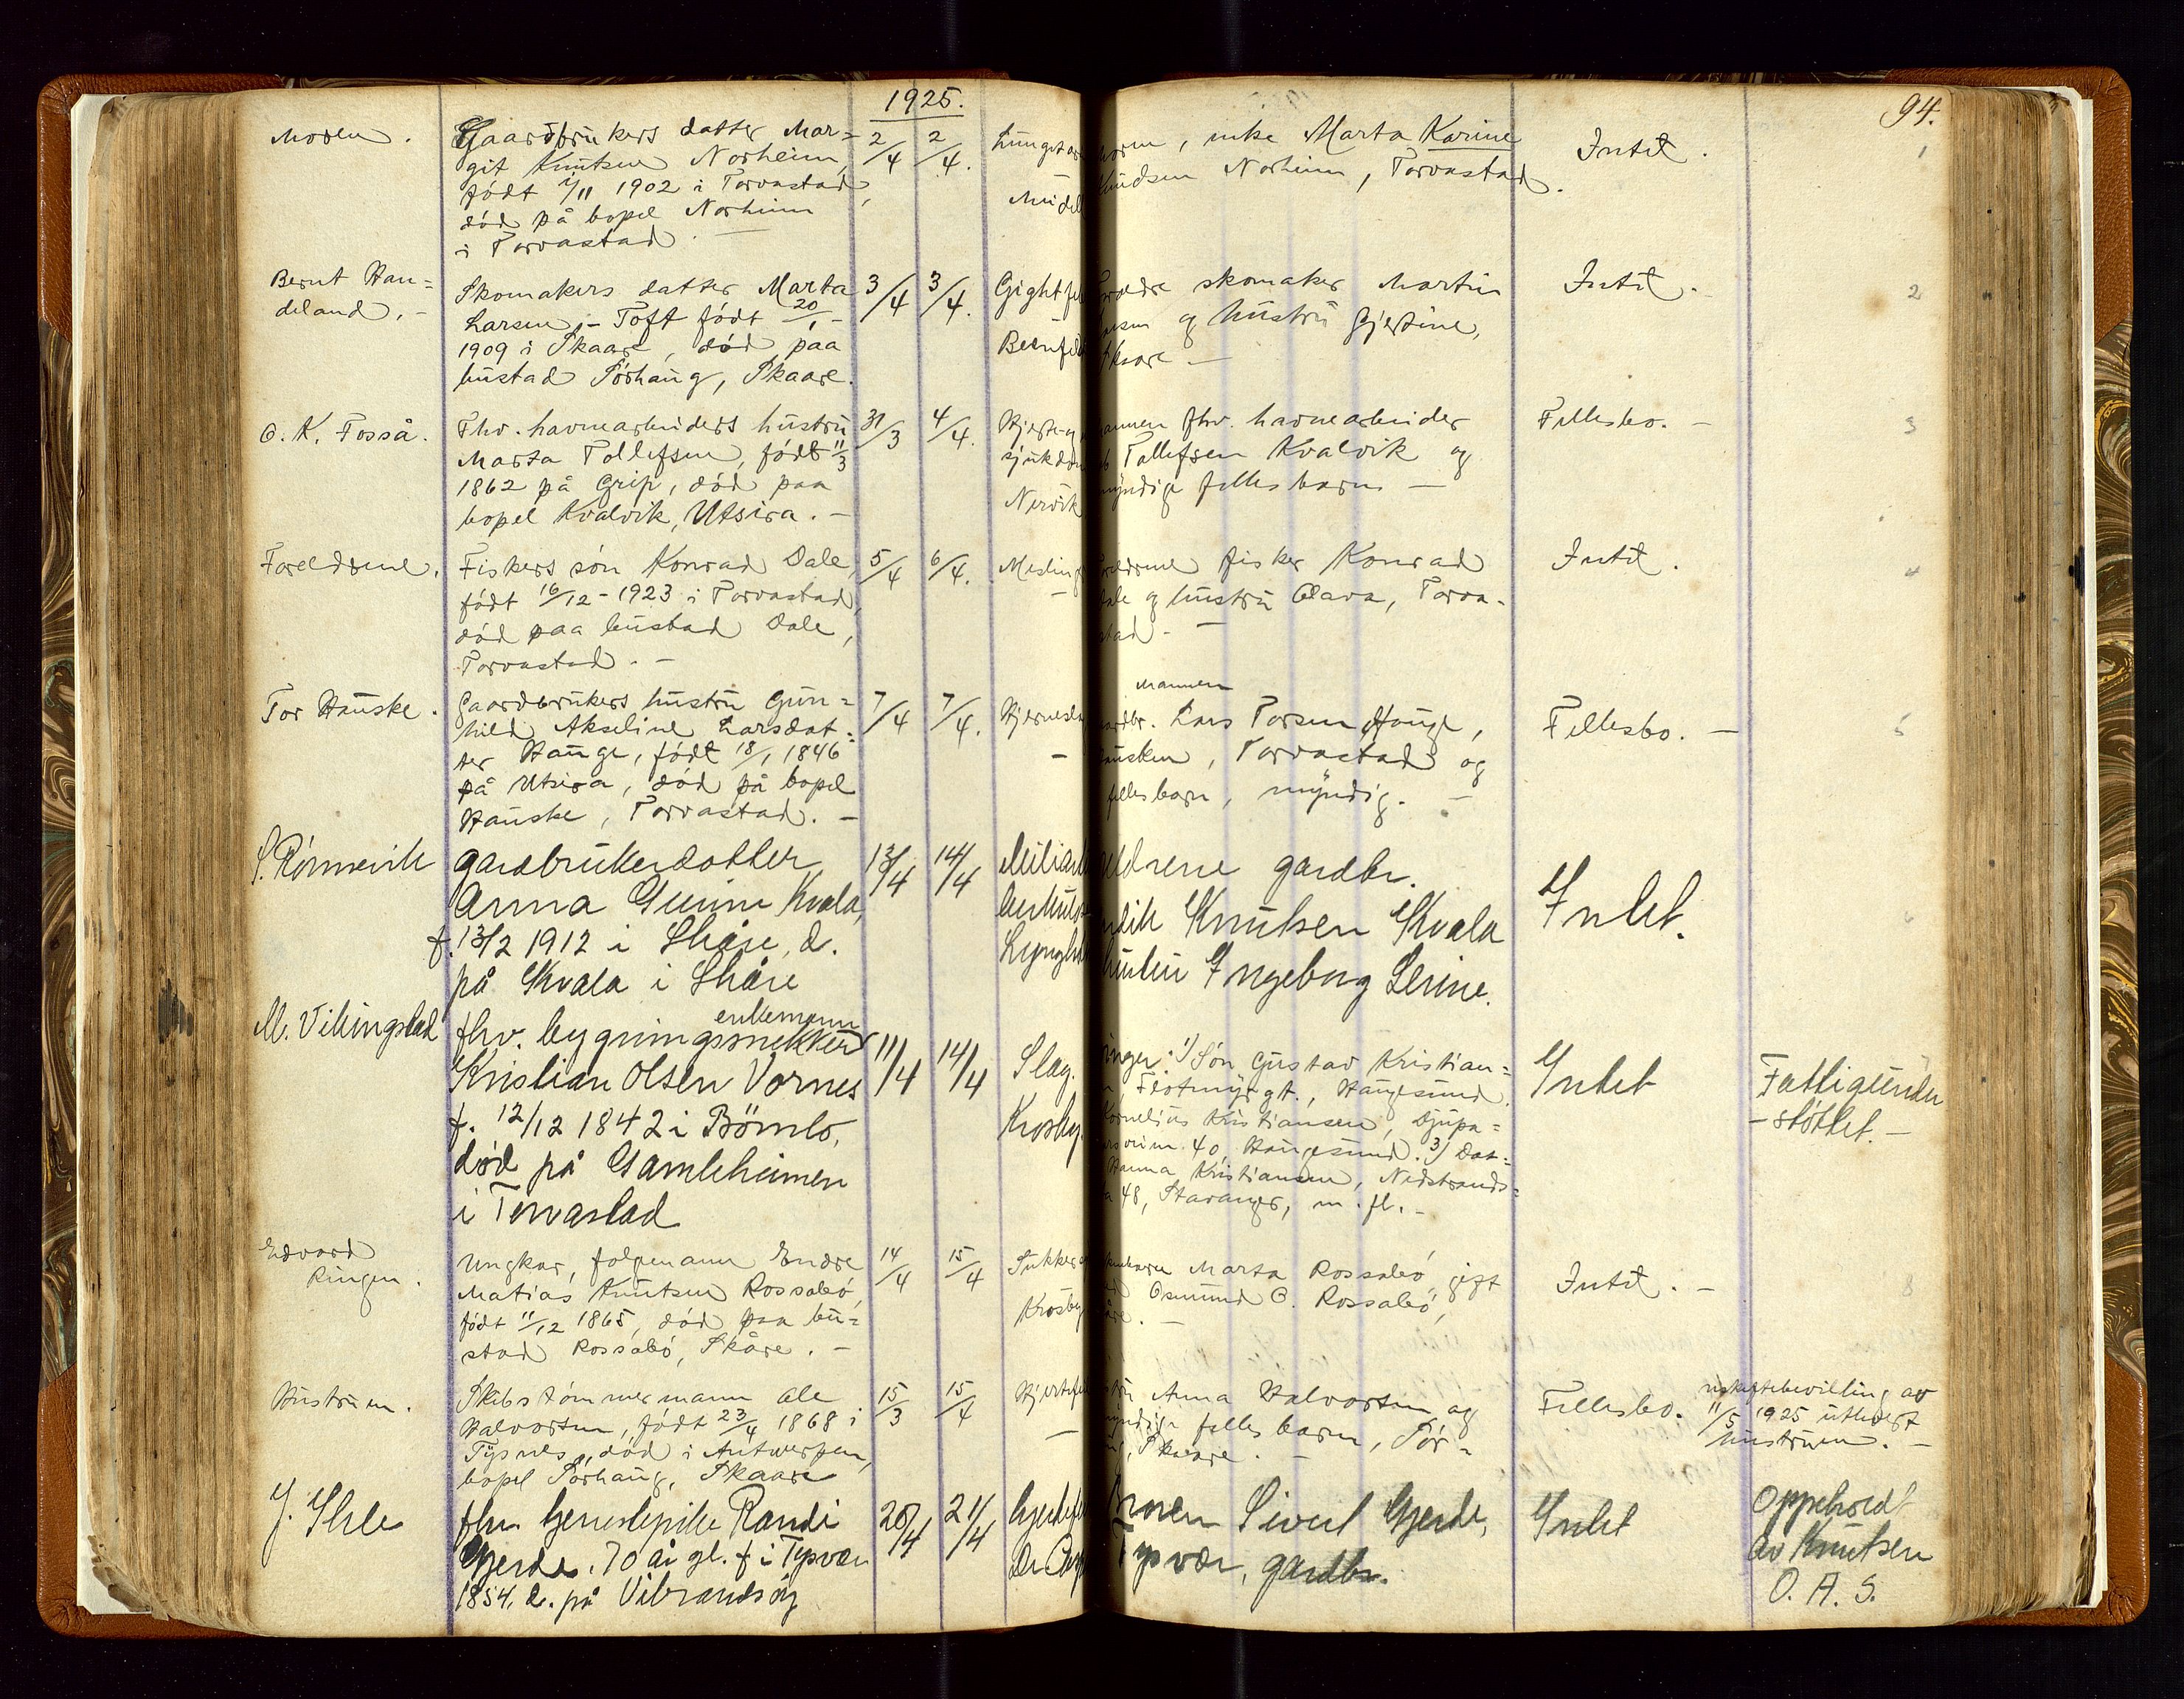 1925.
94.
Moren.
Gaardbrukers datter Mar=
git Knutsen Norheim,
født 7/11 1902 i Torvastad,
død på bopel Norheim
i Torvastad.
2/4 2/4.
Lungetu
Midel
moren, enke Marta Karine
Knudsen Norheim, Torvastad.
Intet.
1
Bernt Hau=
deland. -
Skomakers datter Marta
Larsen, - Toft født 20/1 -
1909 i Skaare, død paa
bustad Sørhaug, Skaare.
3/4 3/4.
Gightfe
foreldre skomaker Martin
Larsen og hustru Gjertine,
Skaare -
Intet. -
2
O. K. Fosså.
Fhv. havnearbeiders hustru
Marta Tollefsen, født 11/3
1862 på Grip, død paa
bopel Kvalvik, Utsira. -
31/3 4/4.
Hjerte-og
sjukdom
Nervik
mannen fhv. havnearbeider
Tollefsen Kvalvik og
myndige fellesbarn -
Fellesbo. -
3
Foreldrene.
Fiskers søn Konrad Dale,
født 16/12 - 1923 i Torvastad,
død paa bustad Dale,
Torvastad. -
5/4 6/4.
Mesling
-
foreldrene fisker Konrad
Dale og hustru Olava, Torva-
stad. -
Intet.
4
Tor Hauske.
Gaardbrukers hustru Gun=
hild Akseline Larsdat=
ter Hauge, født 18/1 1846
på Utsira, død på bopel
Hauske, Torvastad. -
7/4 7/4.
Hjernesla
-
mannen
gardbr. Lars Torsen Hauge,
Hausken, Torvastad og
fellesbarn, myndig. -
Fellesbo. -
5
S. Rönnevik
gardbrukerdatter
Anna Gurine Kvala,
f. 13/2 1912 i Skåre, d.
på Kvala i Skåre
13/4 14/4
Miliær
tuberkulose
Lyngho
foreldrene gardbr.
Knutsen Kvala
hustru Ingeborg Serine.
Intet.
6
M. Vikingstad
enkemann
fhv. bygningssnekker
Kristian Olsen Vornes
f. 12/12 1842 i Bömlo,
död på Gamleheimen
i Torvastad
11/4 14/4
Slag.
Krosby.
1) Søn Gustav Kristian=
sen Flotmyrgt., Haugesund.
Kornelius Kristiansen, Djupa=
40, Haugesund. 3) Dat=
Hanna Kristiansen, Nedstrands=
48, Stavanger, m. fl. -
Intet
Fattigunder
- støttet. -
Edvard
Ringen.
Ungkar, folgemann Endre
Matias Knutsen Rossabø,
født 11/12 1865, død paa bu=
stad Rossabø, Skåre. -
14/4 15/4
Sukker
Krosby
Marta Rossabø, gift
med Osmund O. Rossabø,
Skåre. -
Intet. -
8
Hustruen.
Skibstømmermann Ole
Halvorsen, født 23/4 1868 i
Tysnes, død i Antwerpen,
bopel Sørhaug, Skaare
15/3 15/4
Hjertefei
-
hustru Anna Halvorsen og
myndige felles barn, Sør-
haug, Skaare. -
Fellesbo.
uskiftebevilling av
11/5 1925 utlevert
hustruen. -
J. Ihle
fhv. tjenestepike Randi
Gjerde. 70 år gl. f. i Tysvær
1854, d. på Vibrandsøy
20/4 21/4
Hjertefe
Broren Sivert Gjerde,
Tysvær, gardbr.
Intet
Oppholdt
av Knutsen
O. A. S.